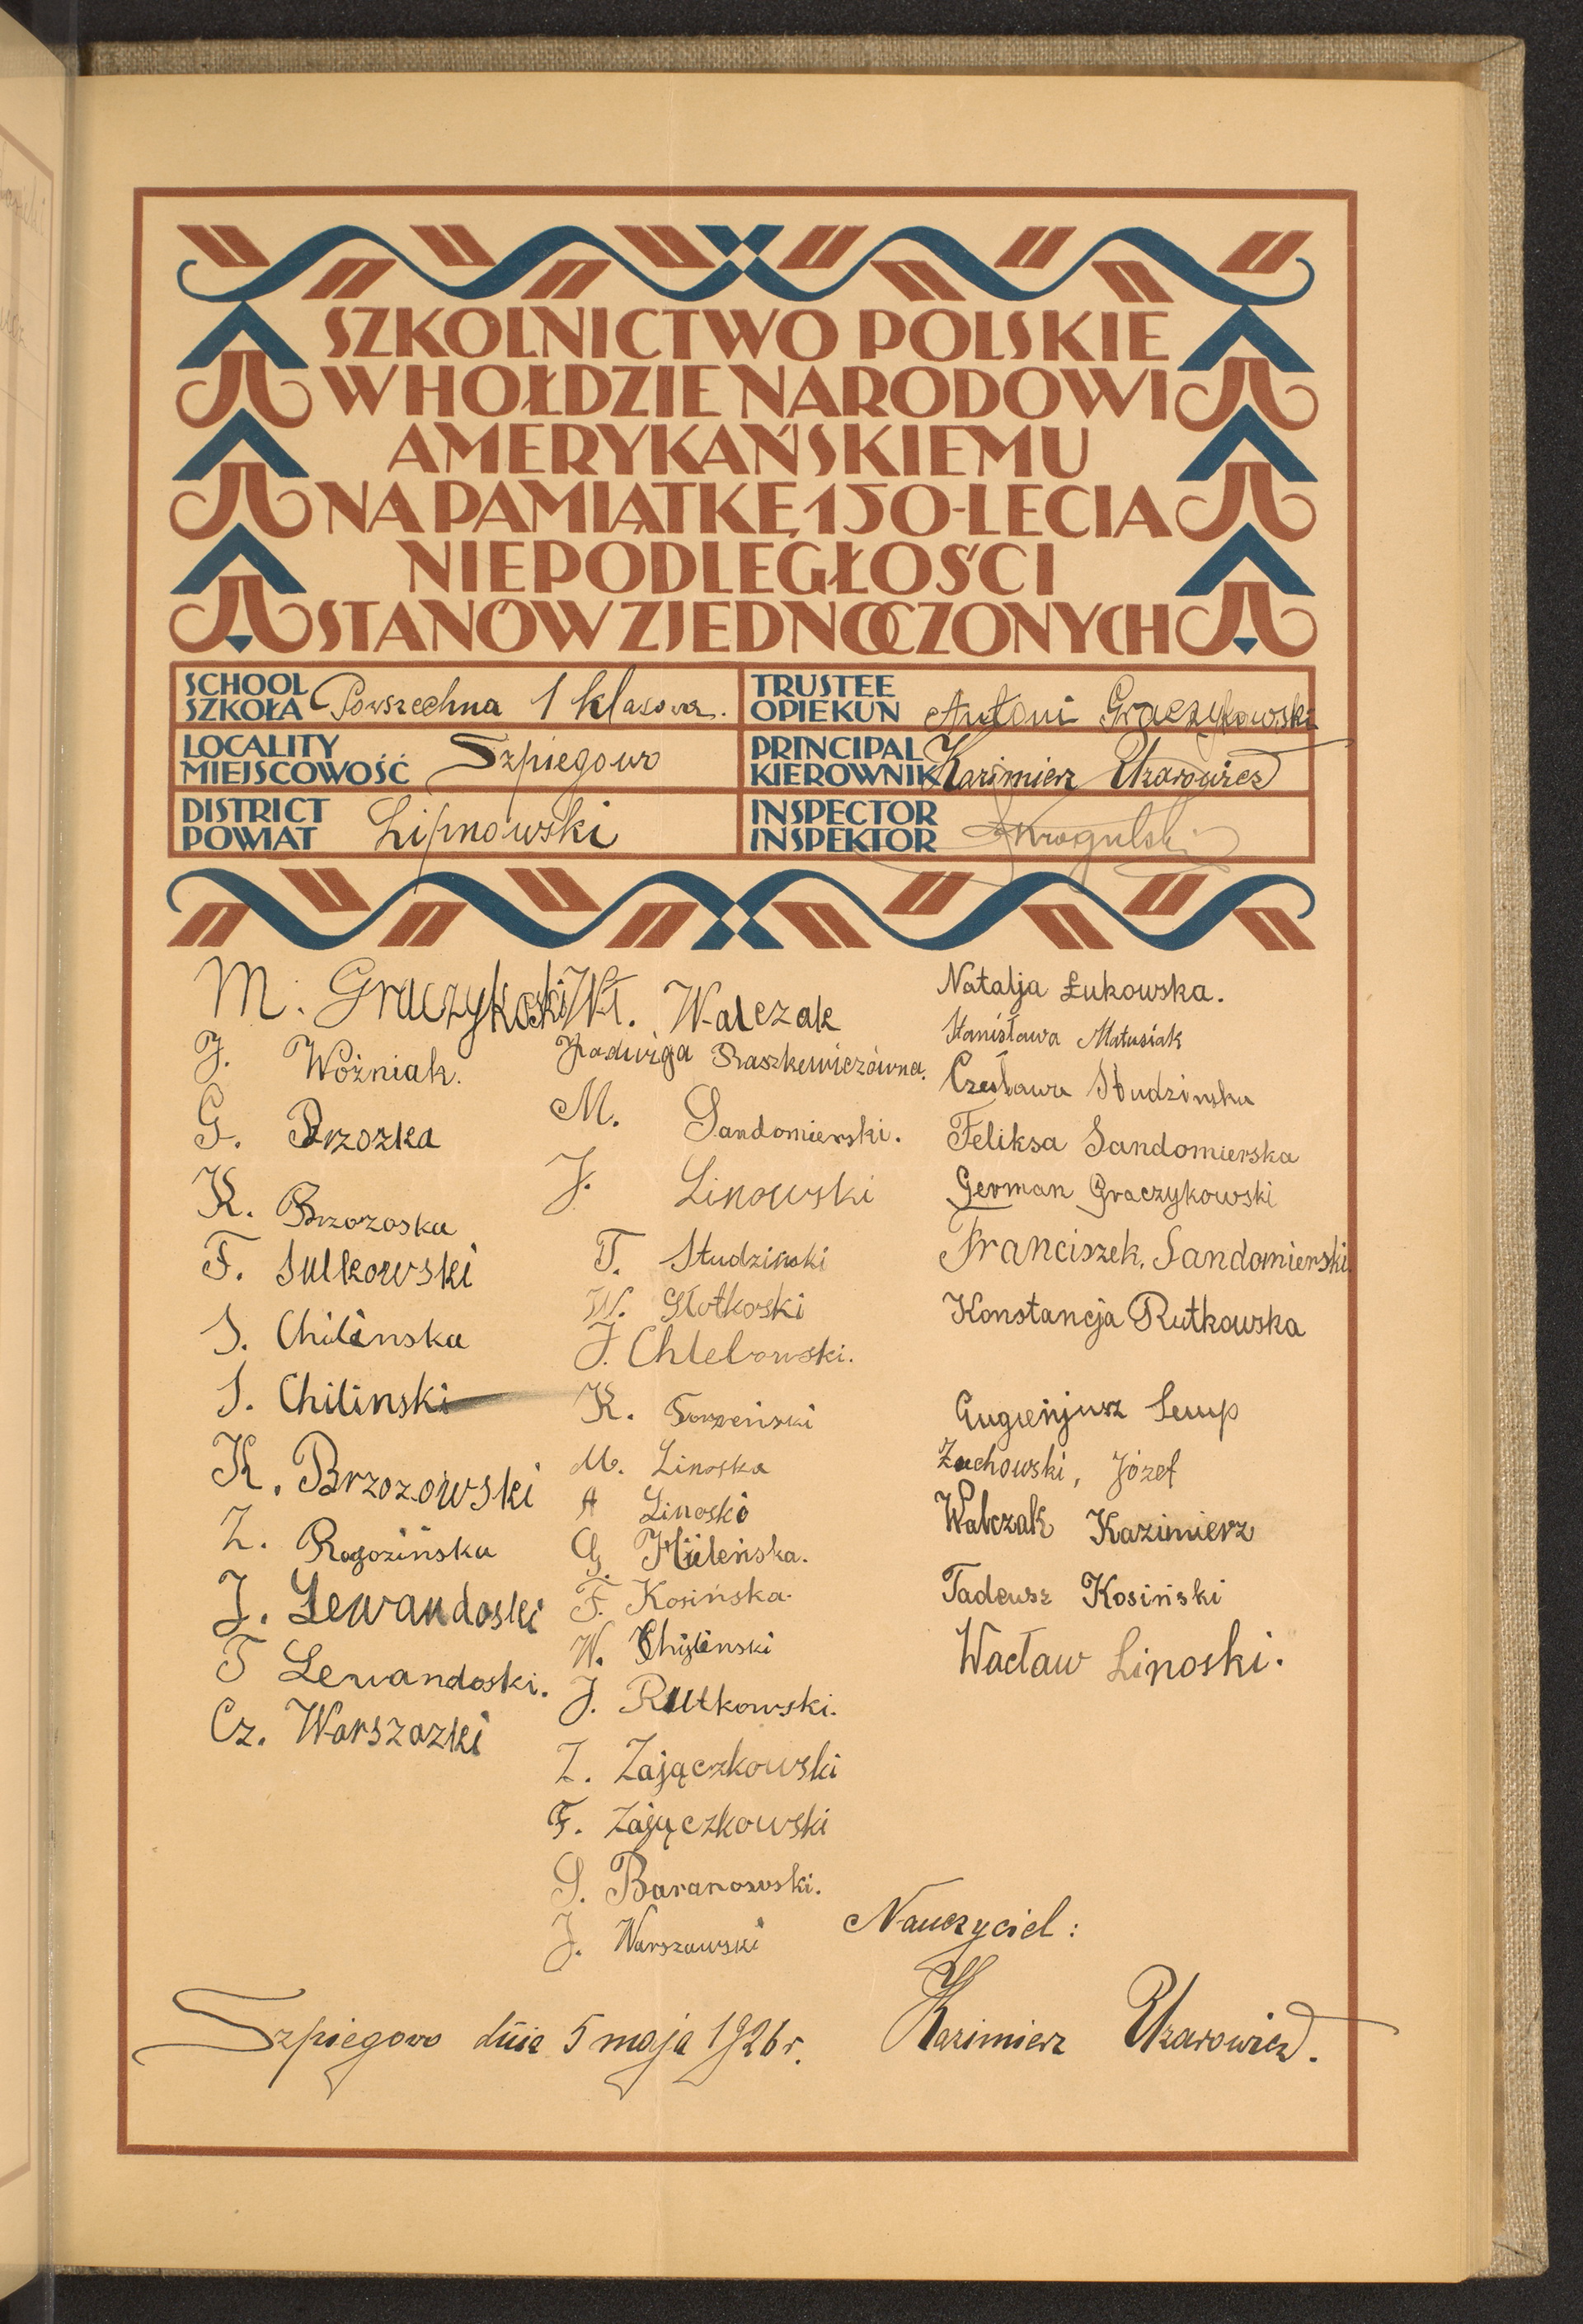 SZKOLNICTWO POLSKIE
W HOŁDZIE NARODOWI
AMERYKAŃSKIEMU
NA PAMIĄTKĘ 150-LECIA
NIEPODLEGŁOŚCI
STANÓW ZJEDNOCZONYCH
SCHOOL
SZKOŁA Powszechna 1 klasowa.
TRUSTEE
OPIEKUN Antoni Graczykowski
LOCALITY
MIEJSCOWOŚĆ Szpiegowo
PRINCIPAL
KIEROWNIK Kazimierz Uzarowicz
DISTRICT
POWIAT Lipnowski
INSPECTOR
INSPEKTOR Krogulski
M. Graczykoski
J. Woźniak.
G. Brzozka
K. Brzozoska
F. Sulkowski
S. Chilinska
S. Chilinski
K. Brzozowski
Z. Rogozińska
J. Lewandoski
T Lewandoski.
Cz. Warszazki
Wł. Walczak
Jadwiga Raszkewiczówna.
M. Sandomierski.
J. Linowski
T. Studzinski
W. Głotkoski
J. Chlebowski.
K.
M. Linoska
A Linoski
G. Hileńska.
F. Kosińska.
W. Chylinski
J. Rutkowski.
Z. Zajączkowski
F. Zajączkowski
S. Baranowski.
J. Warszawski
Natalja Łukowska.
Stanisława Matusiak
Czesława Studzinska
Feliksa Sandomierska
German Graczykowski
Franciszek, Sandomierski
Konstancja Rutkowska
Gugienjusz
Żuchowski, Józef
Walczak Kazimierz
Tadeusz Kosiński
Wacław Linoski.
Nauczyciel:
Kazimierz Uzarowicz.
Szpiegowo dnia 5 maja 1926 r.